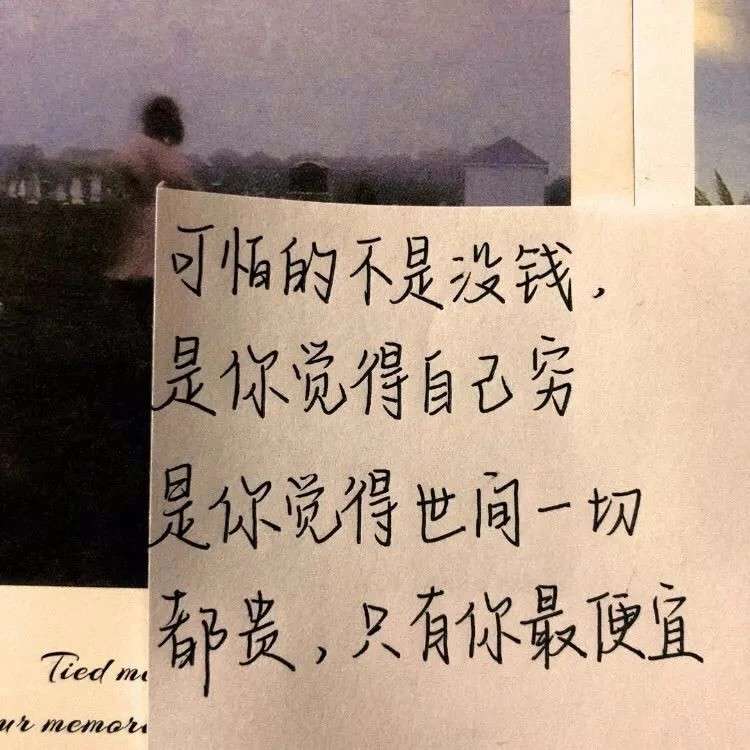 可怕的不是没钱，
是你觉得自己穷
是你觉得世间一切
都贵，只有你最便宜
Tied
ur